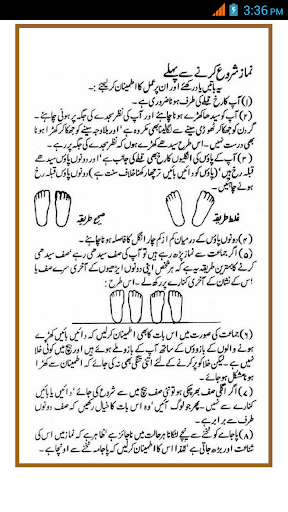 3:36 PM
نماز شروع کرنے سے پہلے
یہ باتیں یاد رکھئے اور ان پر عمل کا اطمینان کر لیجئے :۔
(۱) آپ کا رخ قبلے کی طرف ہونا ضروری ہے۔
(۲) آپ کو سیدھا کھڑے ہونا چاہئے اور آپ کی نظر سجدے کی جگہ پر ہونی چاہئے۔
گردن کو جھکا کر ٹھوڑی سینے سے لگا لینا بھی مکروہ ہے، اور بلاوجہ سینے کو جھکا کر کھڑا ہونا
بھی درست نہیں۔ اس طرح سیدھے کھڑے ہوں کہ نظر سجدے کی جگہ پر رہے۔
(۳) آپ کے پاؤں کی انگلیوں کا رخ بھی قبلے کی جانب ہے، اور دونوں پاؤں سیدھے
قبلہ رخ ہیں، (پاؤں کو دائیں بائیں ترچھا رکھنا خلاف سنت ہے) دونوں پاؤں قبلہ رخ
ہونے چاہئیں۔
غلط طریقہ
صحیح طریقہ
(۴) دونوں پاؤں کے درمیان کم از کم چار انگل کا فاصلہ ہونا چاہئے۔
(۵) اگر جماعت سے نماز پڑھ رہے ہیں تو آپ کی صف سیدھی رہے، صف سیدھی
کرنے کا بہترین طریقہ یہ ہے کہ ہر شخص اپنی دونوں ایڑھیوں کے آخری سرے صف یا
اس کے نشان کے آخری کنارے پر رکھ لے۔ اس طرح :
(۶) جماعت کی صورت میں اس بات کا بھی اطمینان کر لیں کہ دائیں بائیں کھڑے
ہونے والوں کے بازوؤں کے ساتھ آپ کے بازو ملے ہوئے ہیں اور بیچ میں کوئی خلا
نہیں ہے۔ لیکن خلا کو پر کرنے کے لئے اتنی تنگی بھی نہ کی جائے کہ اطمینان سے کھڑا
ہونا مشکل ہو جائے۔
(۷) اگر اگلی صف بھر چکی ہو تو نئی صف بیچ میں سے شروع کی جائے، دائیں یا بائیں
کنارے سے نہیں۔ پھر جو لوگ آئیں، وہ اس بات کا خیال رکھیں کہ صف دونوں
طرف سے برابر رہے۔
(۸) پاجامے کو ٹخنے سے نیچے لٹکانا ہر حالت میں ناجائز ہے، ظاہر ہے کہ نماز میں اس کی
شناعت اور بڑھ جاتی ہے، لہذا اس کا اطمینان کر لیں کہ پاجامہ ٹخنے سے اونچا ہے۔